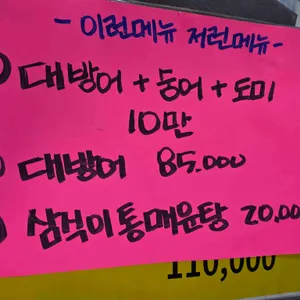 - 이런메뉴 저런메뉴 -
대방어 + 둥어 + 도미
10만
대방어 85.000
삼걱이통매운탕 20,00
110,000